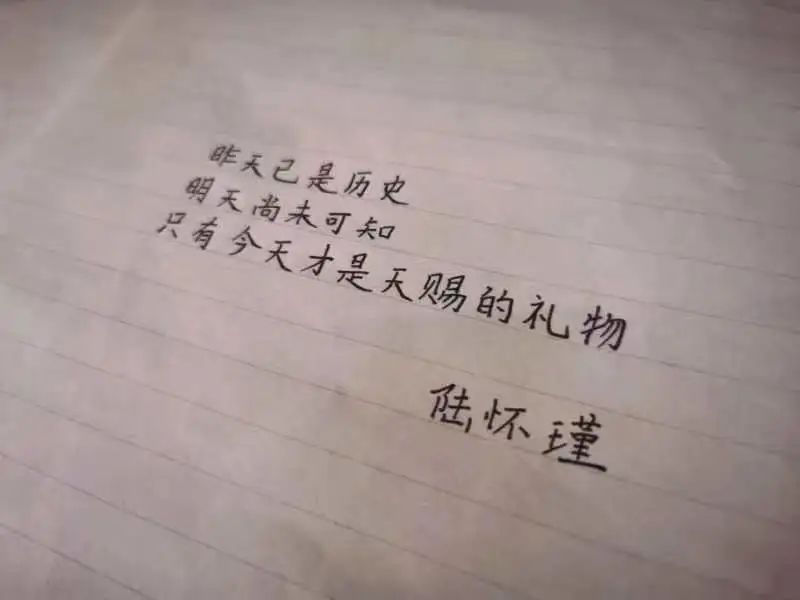 昨天已是历史
明天尚未可知
只有今天才是天赐的礼物
陆怀瑾